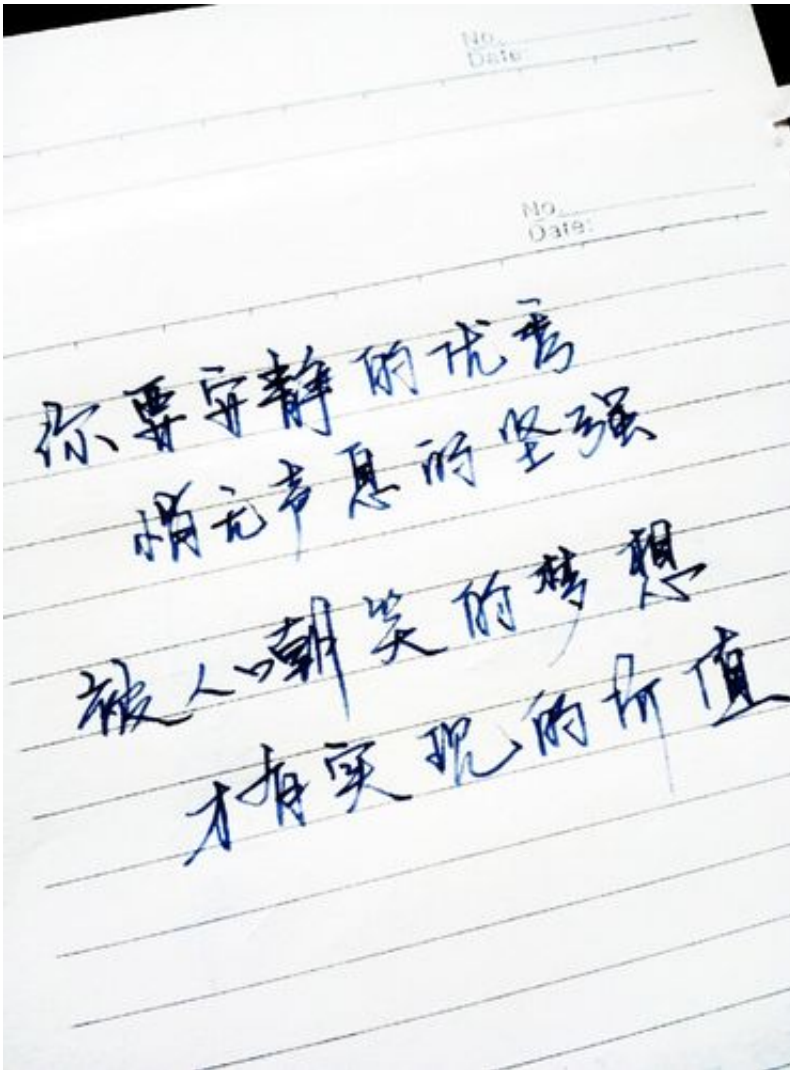 No.
Date:
No.
Date:
你要安静的优秀
悄无声息的坚强
被人嘲笑的梦想
才有实现的价值